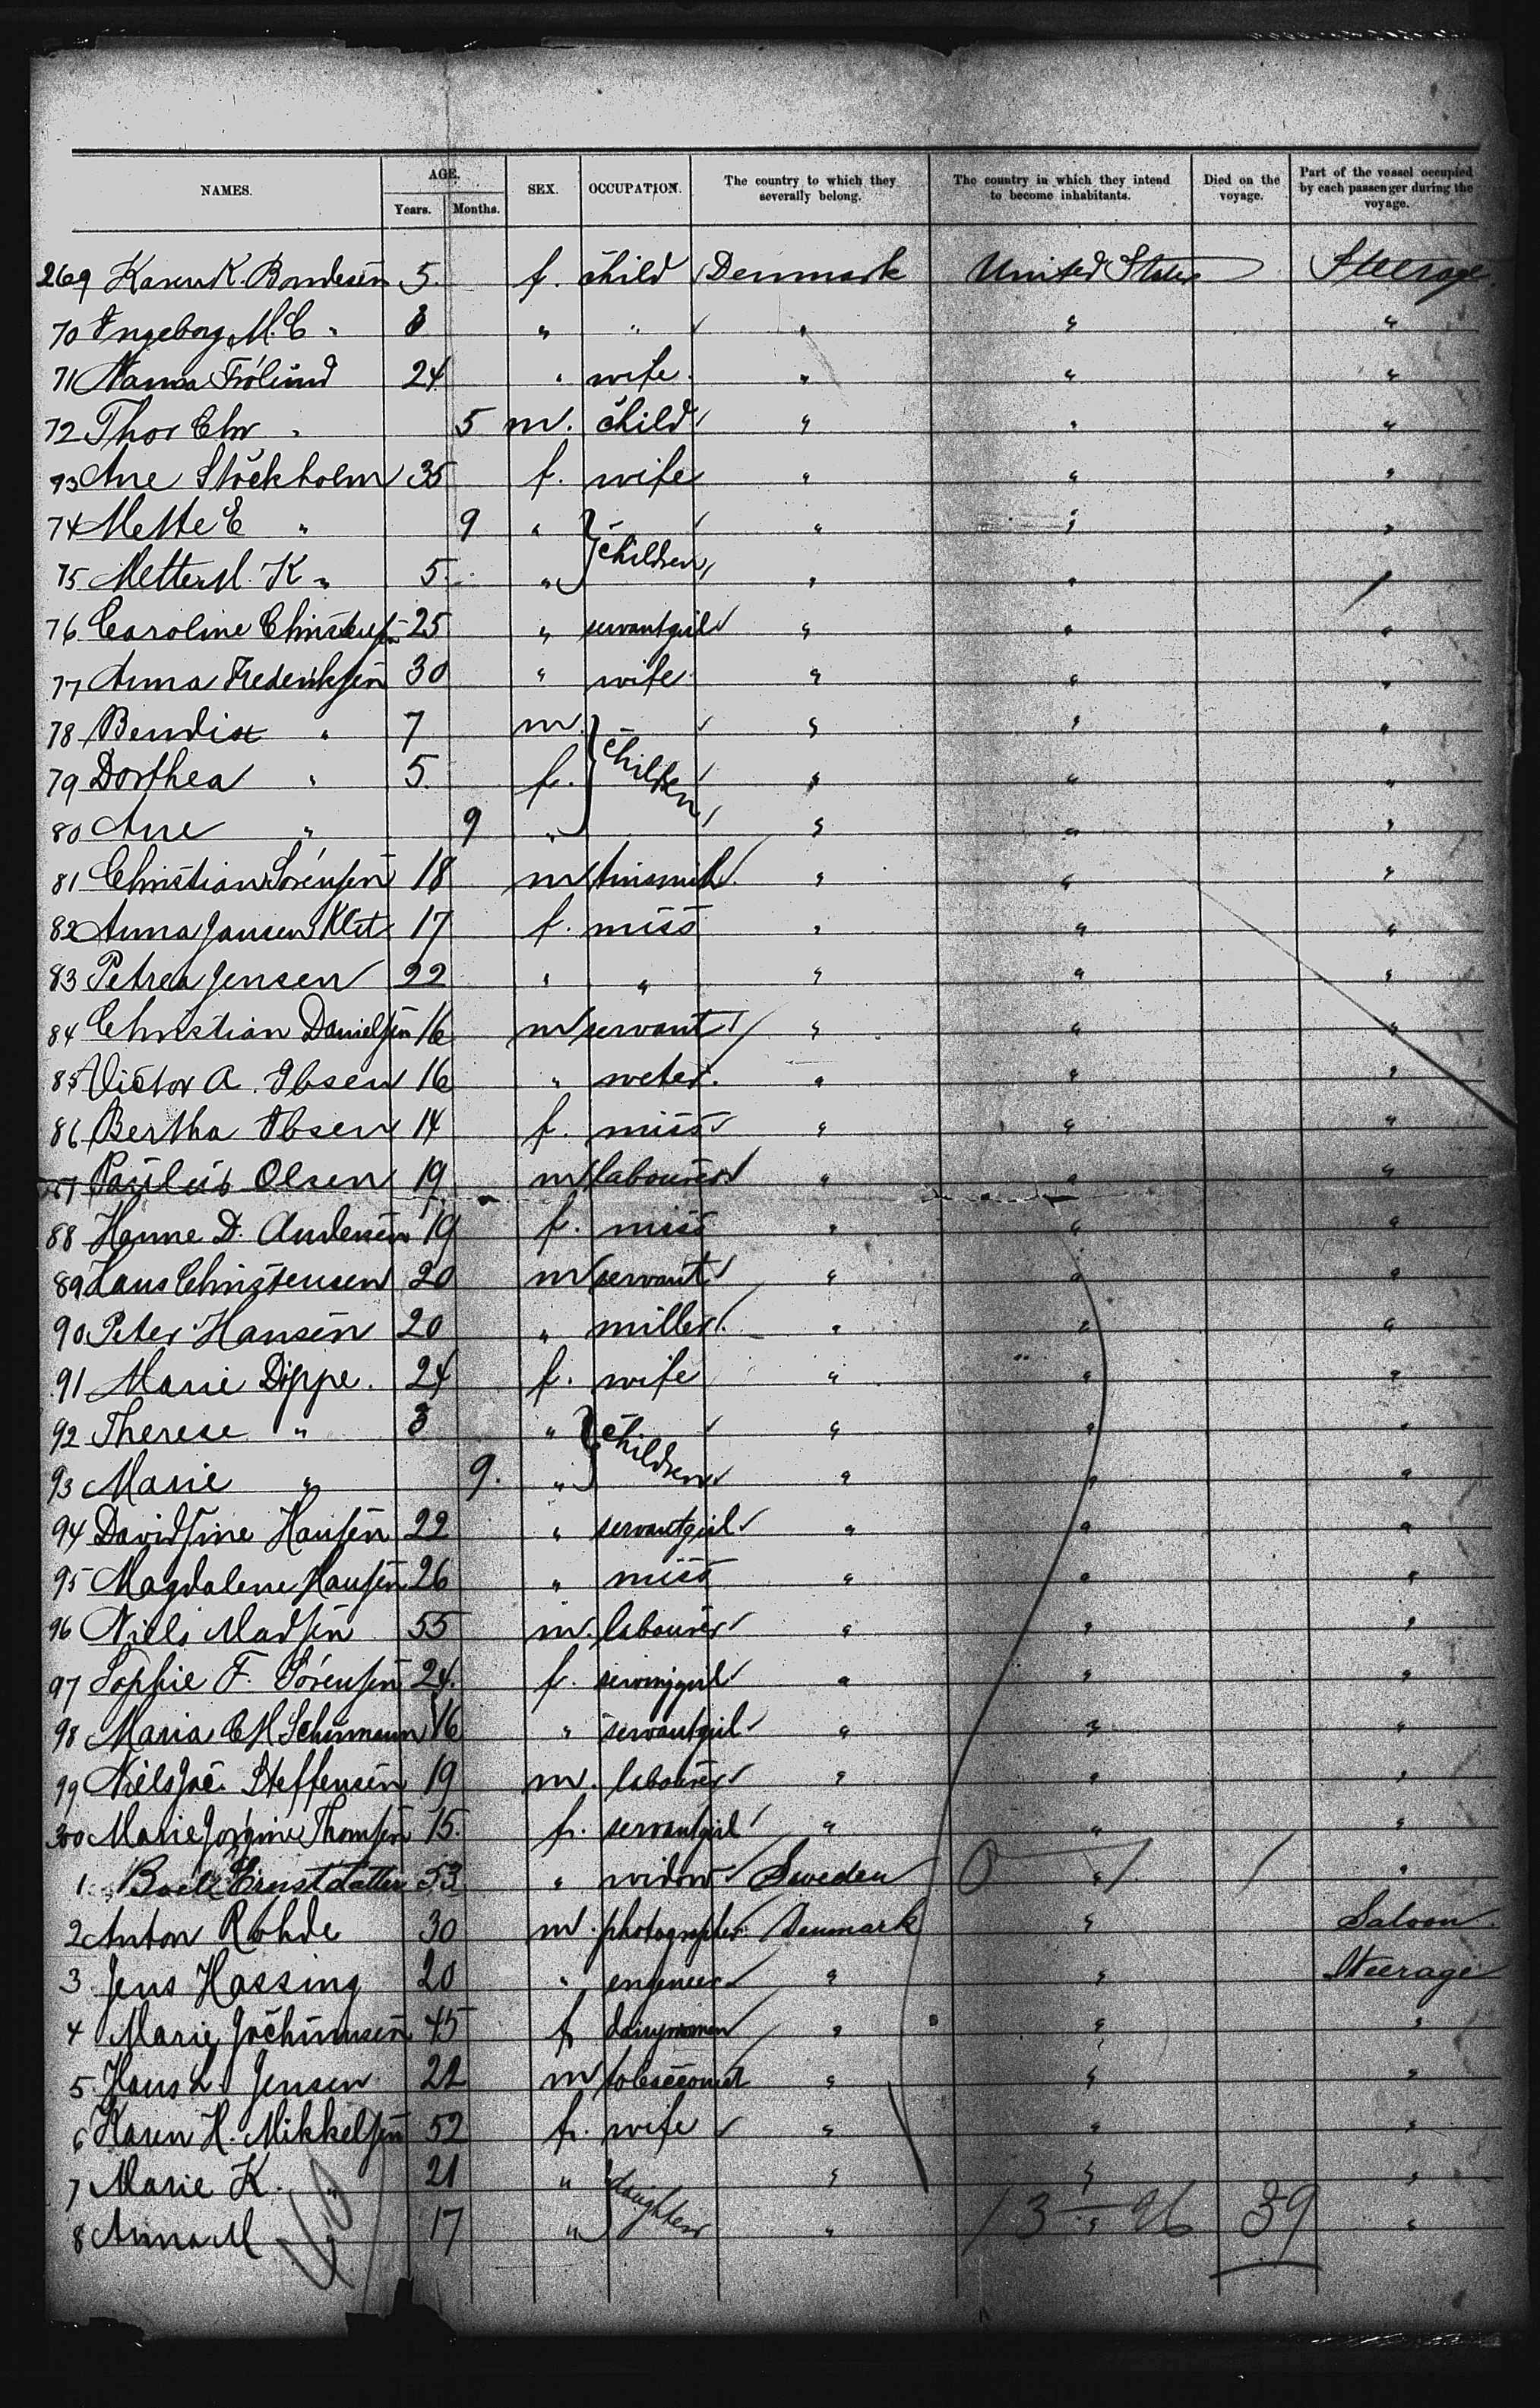 NAMES. AGE. SEX. OCCUPATION. The country to which they severally belong. The country in which they intend to become inhabitants. Died on the voyage. Part of the vessel occupied by each passenger during the voyage.
Years. Months.
269 Karen K. Bondesen 5. f. child Denmark United States Steerage
70 Ingeborg M. C " 3 " " " " "
71 Nanna Frölund 24 " wife " " "
72 Thor Chr " 5 m. child " " "
73 Ane Stockholm 35 f. wife " " "
74 Mette E " 9 " } children " " "
75 Mette M. K " 5 " " " "
76 Caroline Christensen 25 " servantgirl " " "
77 Anna Frederiksen 30 " wife " " "
78 Bendix " 7 m. } children " " "
79 Dorthea " 5. f. " " "
80 Ane " 9 " " " "
81 Christian Sörensen 18 m tinsmith " " "
82 Anna Jansen Klit 17 f. miss " " "
83 Petrea Jensen 22 " " " " "
84 Christian Danielsen 16 m servant " " "
85 Victor A. Ibsen 16 " " " "
86 Bertha Ibsen 14 f. miss " " "
87 Paulus Olsen 19 m labourer " " "
88 Hanne D. Andersen 19 f. miss " " "
89 Hans Christensen 20 m servant " " "
90 Peter Hansen 20 " miller " " "
91 Marie Dippe. 24 f. wife " " "
92 Therese " 3 " } children " " "
93 Marie " 9. " " " "
94 Davidsine Hansen 22 " servantgirl " " "
95 Magdalene Hansen 26 " miss " " "
96 Niels Madsen 55 m. labourer " " "
97 Sophie F. Sörensen 24. f. " " "
98 Maria C M Schürmann 16 " servantgirl " " "
99 Niels Jac. Steffensen 19 m. labourer " " "
300 Marie Jörgine Thomsen 15. f. servantgirl " " "
1 Ernstdatter 53 " widow Sweden " "
2 Anton Rohde 30 m. photographer. Denmark " Saloon
3 Jens Hassing 20 " engeneer " " Steerage
4 Marie Jochimsen 45 f dairywoman " " "
5 Hans L. Jensen 22 m " " "
6 Karen H. Mikkelsen 52 f. wife " " "
7 Marie K. " 21 " } daughters " " "
8 Anna M " 17 " " " "
13 - 26 39